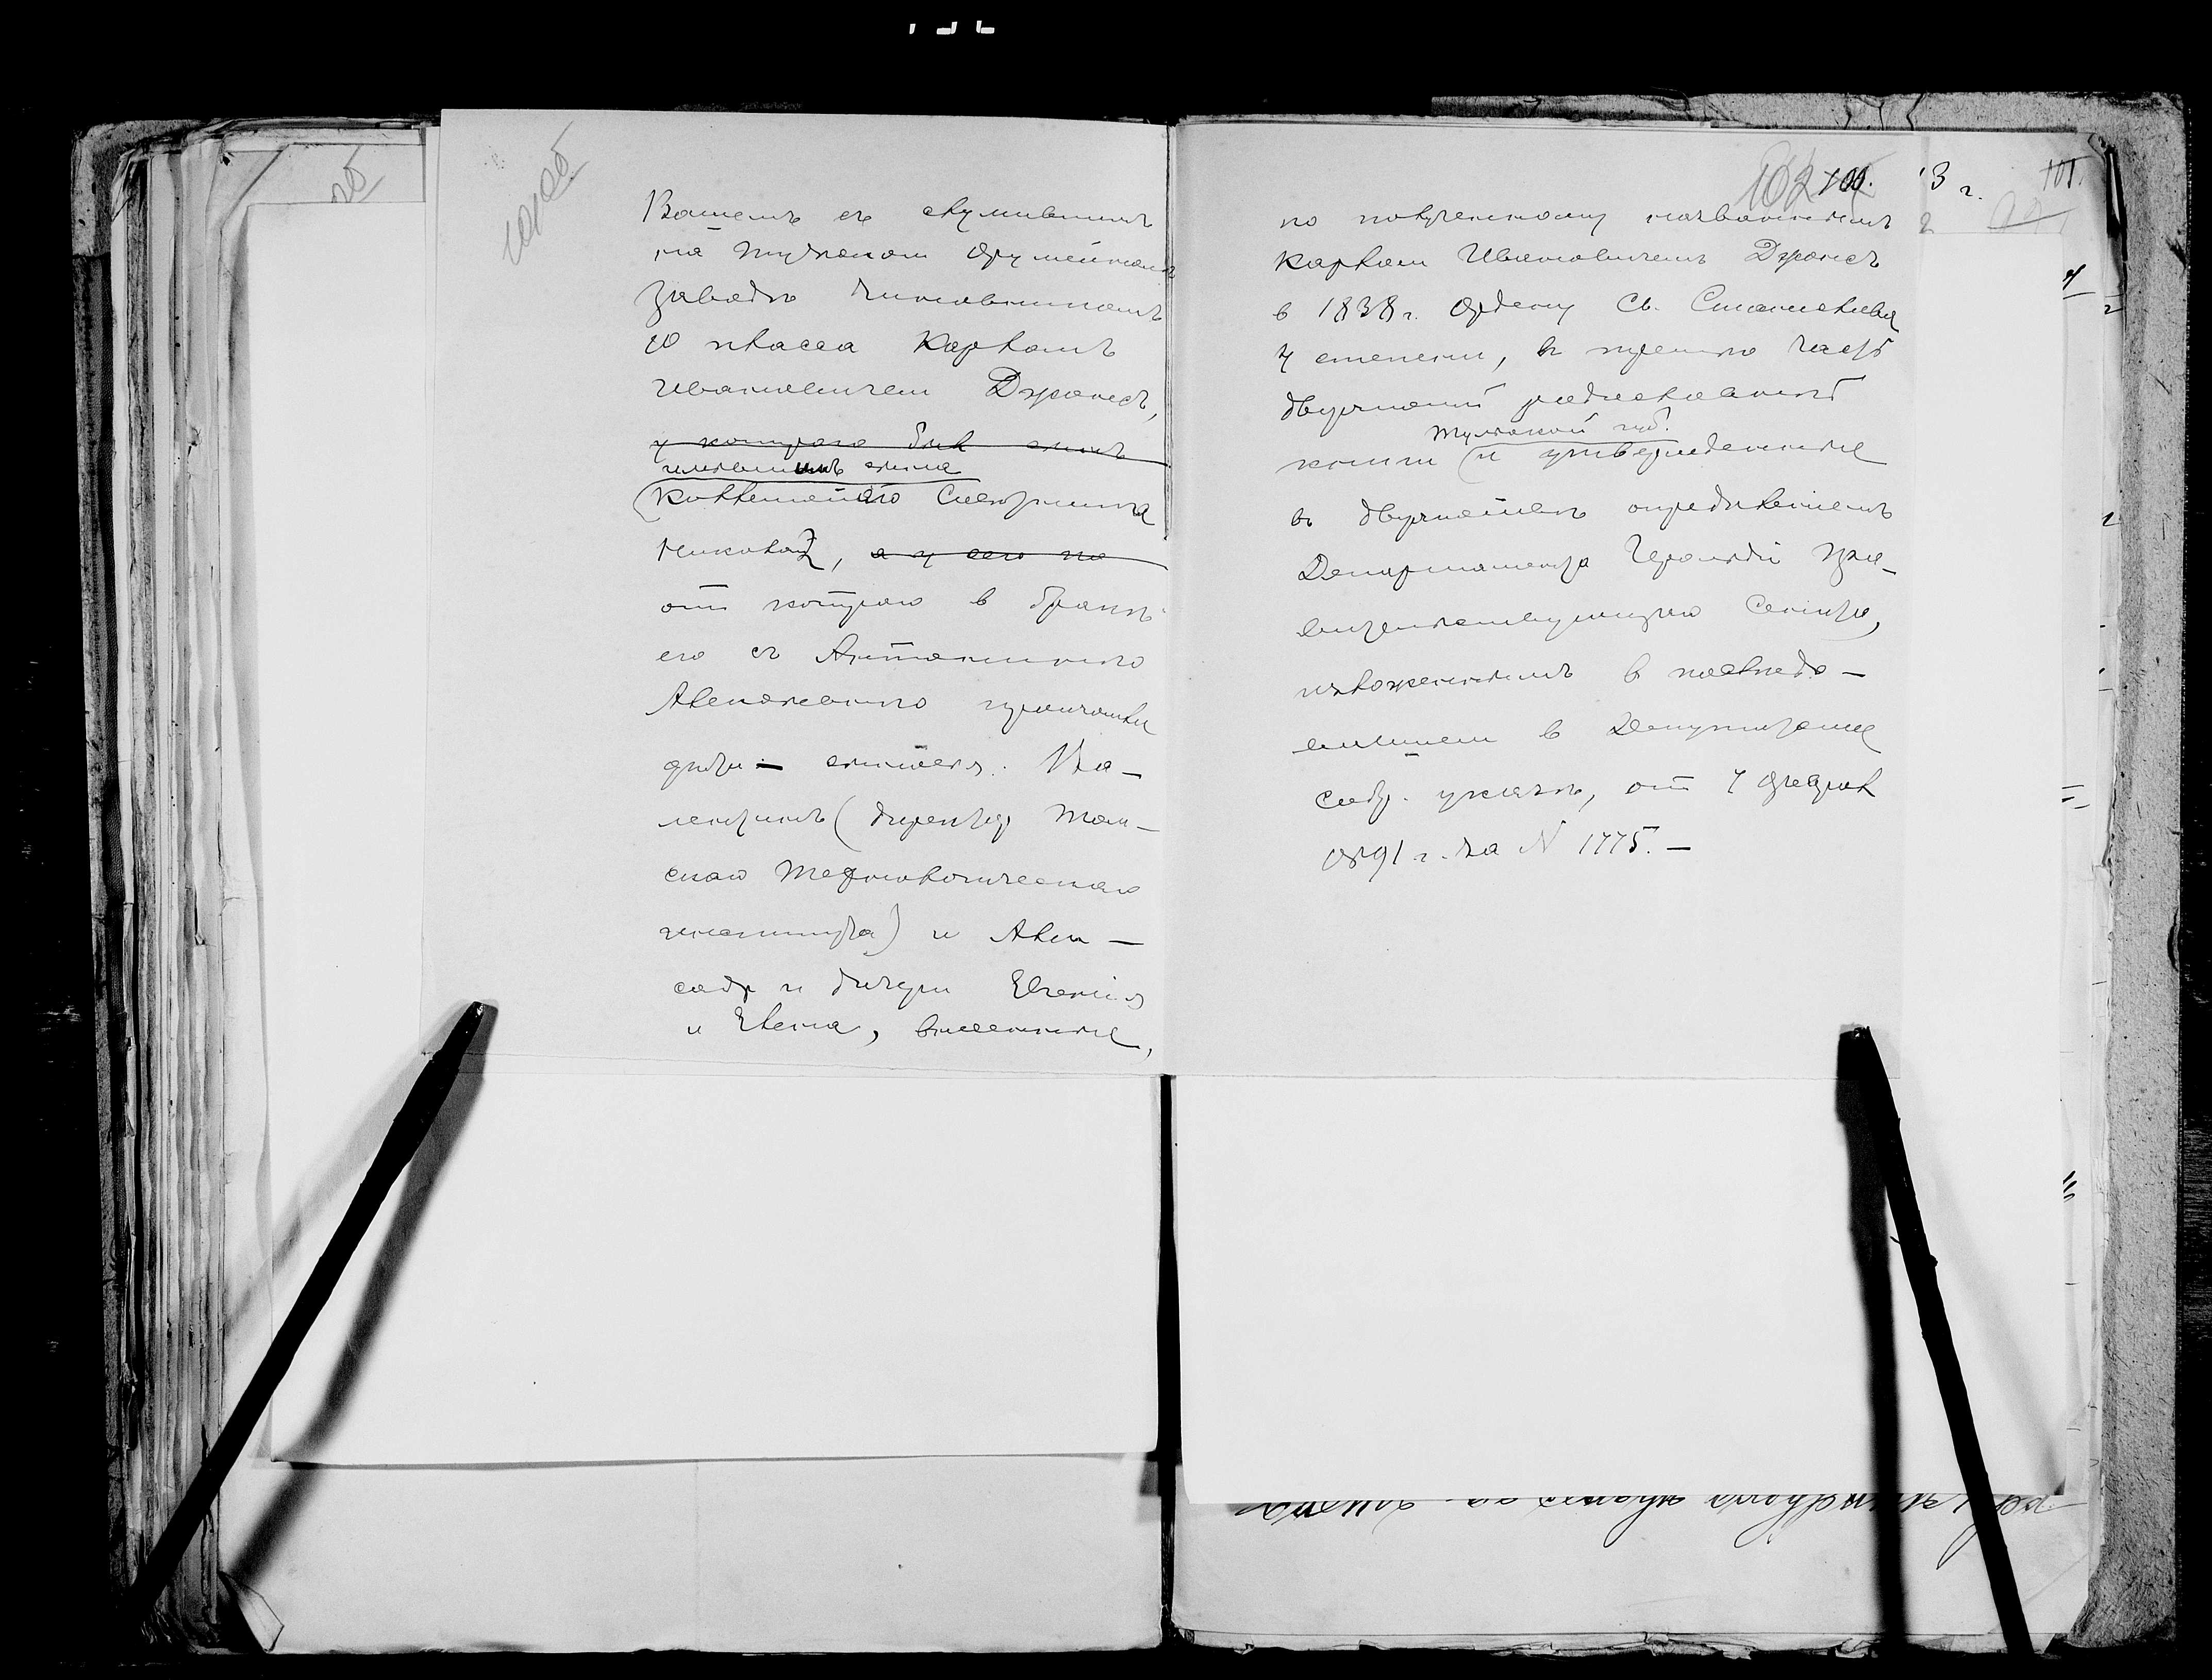 Вашемъ съ служившимъ
на Тульскомъ Оружейномъ
заводѣ чиновникомъ
10 класса Карломъ
Ивановичемъ Джонсъ,
у котораго былъ сынъ
имѣвшимъ сына
Коллежскаго Секретаря
Николая, а у сего по
отъ котораго в бракѣ
его съ Антониною
Алексѣевною произошли
дѣти — сыновья: Ва—
лентинъ (директоръ Том—
скаго Технологическаго
института) и Алек—
сандръ и дочери Евгенія
и Елена, внесенные,
102 100.
по полученному названнымъ
Карломъ Ивановичемъ Джонсъ
в 1838 г. Ордену Св. Станислава
4 степени, въ третью часть
дворянской родословной
Тульской губ.
книги и утвержденные
въ дворянствѣ опредѣленіемъ
Департамента Герольдіи Пра—
вительствующаго Сената,
изложеннымъ в послѣдо—
вавшемъ в Депутатское
Собр. указѣ, отъ 7 Феврал
1891 г. за N 1775. —
3 г.
101.